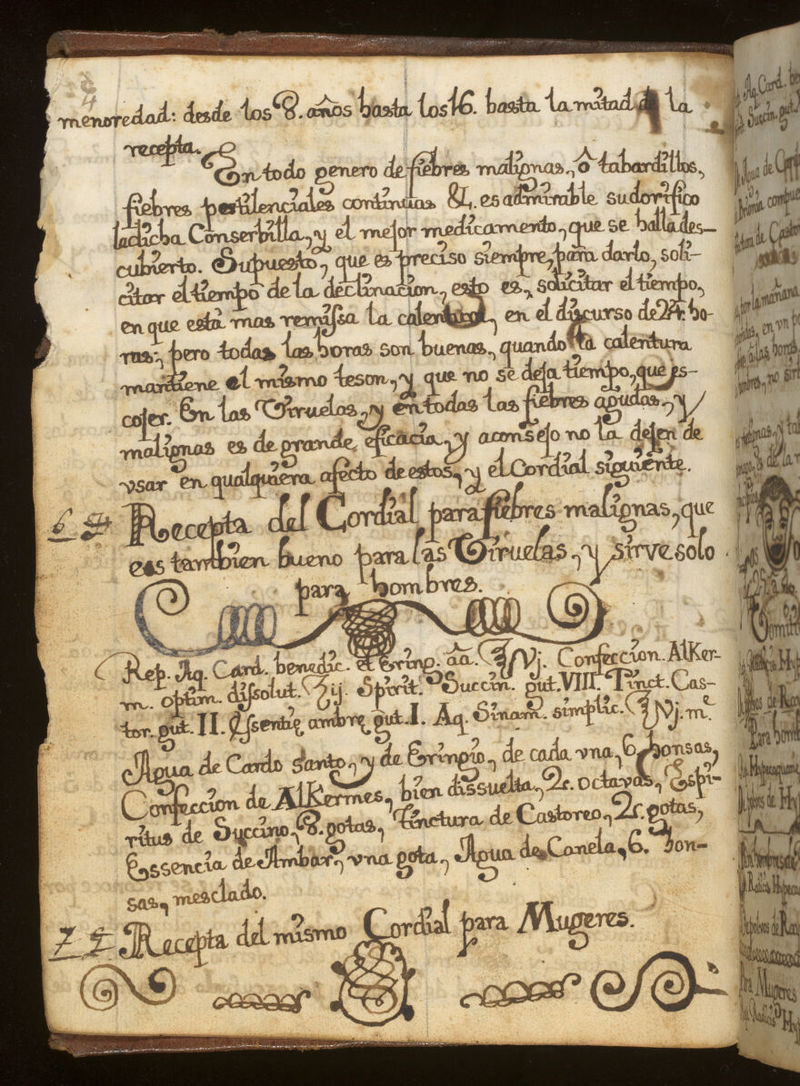 4
menor edad: desde los 8. años hasta los 16. hasta la mitad de la
recepta.
En todo genero de fiebres malignas, ô tabardillos,
fiebres pestilenciales continuas &. es admirable sudorifico
la dicha Conserbilla, y el mejor medicamento, que se halla des-
cubierto. Supuesto, que es preciso siempre, para darlo, soli-
citar el tiempo de la declinacion, esto es, solicitar el tiempo,
en que està mas remissa la calentura, en el discurso de 24. ho-
ras; pero todas las horas son buenas, quando la calentura
mantiene el mismo teson, y que no se deja tiempo, que es-
cojer. En las Viruelas, y en todas las fiebres agudas, y
malignas es de grande eficacia, y aconsejo no la dejen de
vsar en qualquiera afecto de estos, y el Cordial siguiente.
6 Recepta del Cordial para fiebres malignas, que
es tambien bueno para las Viruelas, y sirve solo
para hombres.
Rep. Aq. Card. benedic. et Ering. aã. ℥vj. Confeccion. AlKer-
m. optim. dissolut. ʒij. Spirit. Succin. gut. VIII. Tinct. Cas-
tor. gut. II. Essentię ambrę gut. I. Aq. Sinam. simplic. ℥vj. m.e
Agua de Cardo Santo, y de Eringio, de cada vna, 6. honsas,
Confeccion de AlKermes, bien dissuelta, 2. octavas, Espi-
ritus de Succino, 8. gotas, Tinctura de Castoreo, 2. gotas,
Essencia de Ambar, vna gota, Agua de Canela, 6. hon-
sas, mesclado.
7 Recepta del mismo Cordial para Mugeres.